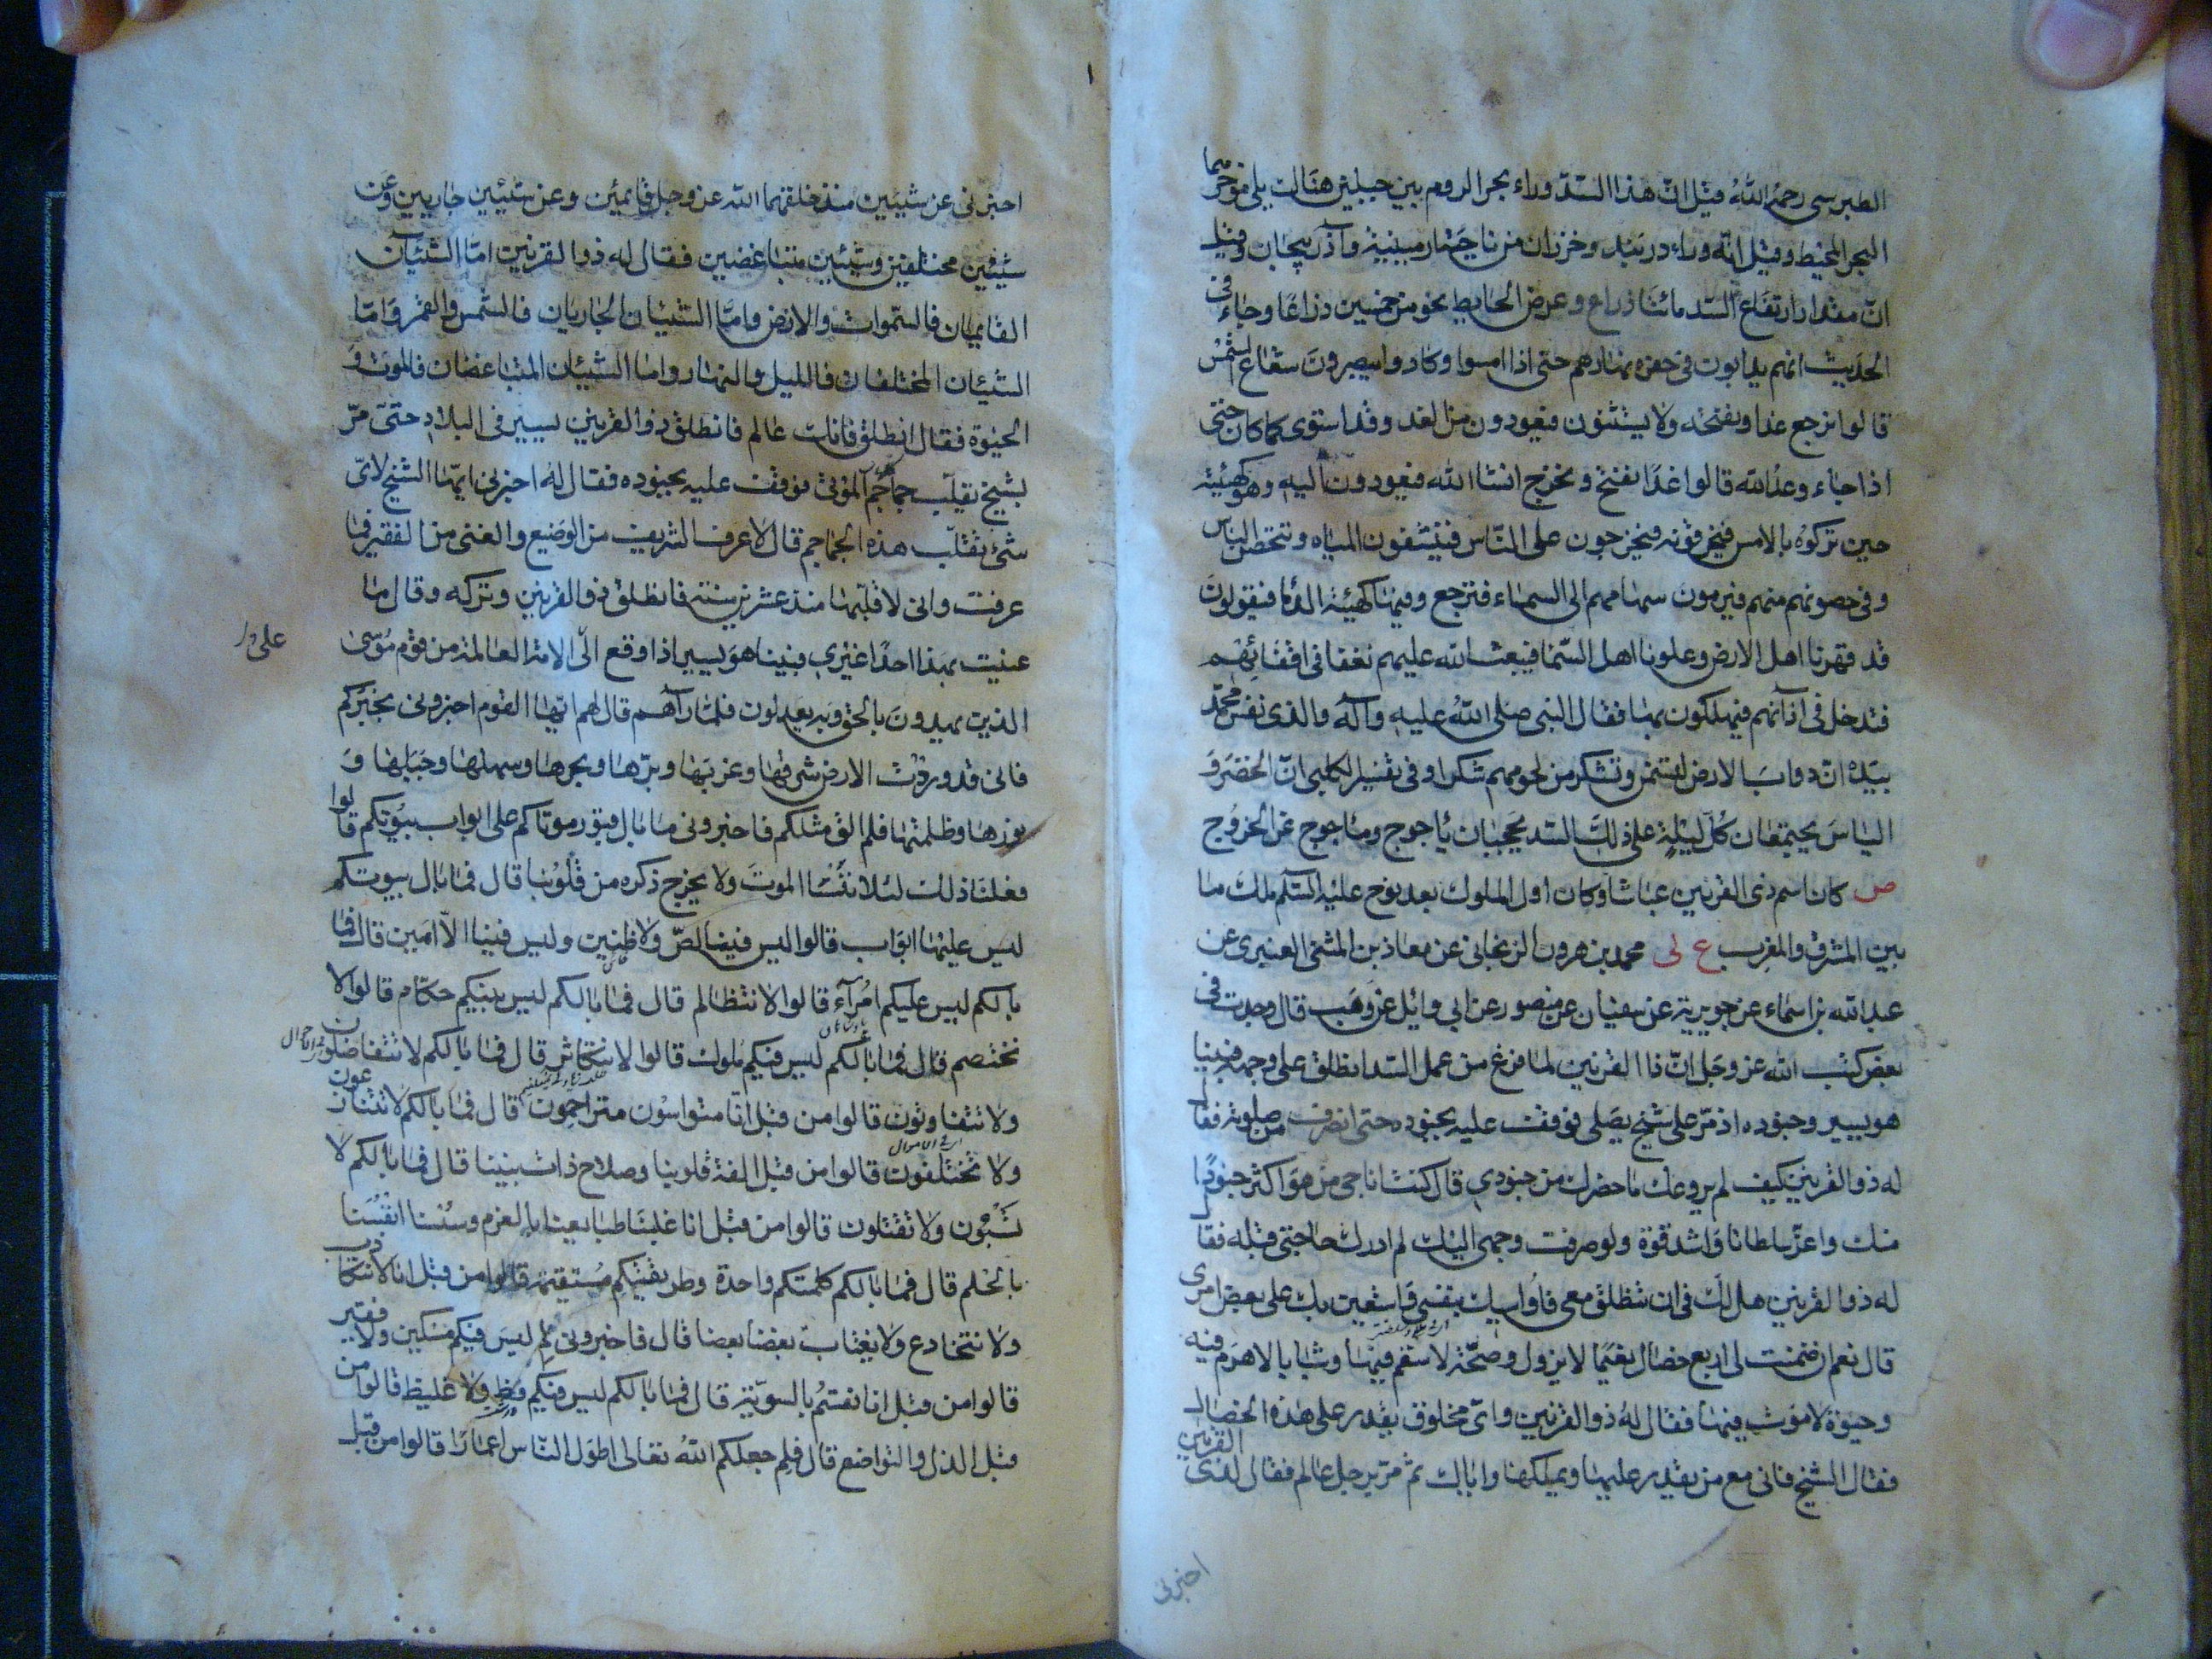 الطبرسى رحمه الله قيل ان هذا السد وراء بحر الروم بين جبلين هناك يلى مؤخرهما
البحر المحيط وقيل انه وراء دربند وخزران من ناحية ارمينية وآذربيجان وقيل
ان مقدار ارتفاع السد مائتا ذراع وعرض الحايط نحو من خمسين ذراعا وجاء فى
الحديث انهم يدابون فى حفره نهارهم حتى اذا امسوا وكادوا يبصرون شعاع الشمس
قالوا نرجع غدا ونفتحه ولا يستثنون فيعودون من الغد وقد استوى كما كان حتى
اذا جاء وعد الله قالوا غدا نفتح ونخرج انشا الله فيعودون اليه وهو كهيئته
حين تركوه بالامس فيخرقونه فيخرجون على الناس فينشفون المياه وتتحصن الناس
وفى حصونهم منهم فيرمون سهامهم الى السماء فترجع وفيها كهيئة الدما فيقولون
قد قهرنا اهل الارض وعلونا اهل السما فيبعث الله عليهم نغفا فى اقفائهم
فتدخل فى آذانهم فيهلكون بها فقال النبى صلى الله عليه وآله والذى نفس محمد
بيده ان دواب الارض لتسمن وتشكر من لحومهم شكرا وفى تفسير الكلبى ان الخضر و
الياس يجتمعان كل ليلة على ذلك السد يحجبان ياجوج وماجوج عن الخروج
ص كان اسم ذى القرنين عياشا وكان اول الملوك بعد نوح عليه السلم ملك ما
بين المشرق والمغرب ع لى محمد بن هرون الزنجانى عن معاذ بن المثنى العنبرى عن
عبد الله بن اسماء عن جويرية عن سفيان عن منصور عن ابى وائل عن وهب قال وجدت فى
بعض كتب الله عز وجل ان ذا القرنين لما فرغ من عمل السد انطلق على وجهه فبينا
هو يسير وجنوده اذ مر على شيخ يصلى فوقف عليه بجنوده حتى انصرف من صلوته فقال
له ذو القرنين كيف لم يروعك ما حضرك من جنودى قال كنت اناجى من هو اكثر جنودا
منك واعز سلطانا واشد قوة ولو صرفت وجهى اليك لم ادرك حاجتى قبله فقال
له ذو القرنين هل لك فى ان تنطلق معى فاواسيك بنفسى واستعين بك على بعض امرى
قال نعم ان ضمنت لى اربع خصال نعيما لا يزول وصحة لا سقم فيها وشبابا لا هرم فيه
وحيوة لا موت فيها فقال له ذو القرنين واى مخلوق يقدر على هذه الخصال
فقال الشيخ فانى مع من يقدر عليها ويملكها واياك ثم مر برجل عالم فقال لذى القرنين
اخبرنى
اخبرنى عن شيئين منذ خلقهما الله عز وجل قايمين وعن شيئين جاريين وعن
شيئين مختلفين وشيئين متباغضين فقال له ذو القرنين اما الشيئان
القايمان فالسموات والارض واما الشيئان الجاريان فالشمس والقمر واما
الشيئان المختلفان فالليل والنهار واما الشيئان المتباغضان فالموت و
الحيوة فقال انطلق فانك عالم فانطلق ذو القرنين يسير فى البلاد حتى مر
بشيخ يقلب جماجم الموتى فوقف عليه بجنوده فقال له اخبرنى ايها الشيخ لاى
شئ تقلب هذه الجماجم قال لاعرف الشريف من الوضيع والغنى من الفقير فما
عرفت وانى لاقلبها منذ عشرين سنة فانطلق ذو القرنين وتركه وقال ما
عنيت بهذا احدا غيرى فبينا هو يسير اذا وقع الى الامة العالمة من قوم موسى
الذين يهدون بالحق وبه يعدلون فلما رآهم قال لهم ايها القوم اخبرونى بخبركم
فانى قد درت الارض شرقها وغربها وبرها وبحرها وسهلها وجبلها و
نورها وظلمتها فلم الق مثلكم فاخبرونى ما بال قبور موتاكم على ابواب بيوتكم قالوا
فعلنا ذلك لئلا ننسا الموت ولا يخرج ذكره من قلوبنا قال فما بال بيوتكم
ليس عليها ابواب قالوا ليس فينا لص ولا ظنين وليس فينا الا امين قال فما
بالكم ليس عليكم امرآء قالوا لا نتظالم قال فما بالكم ليس بينكم حكام قالوا لا
نختصم قال فما بالكم ليس فيكم ملوك قالوا لا نتكاثر قال فما بالكم لا تتفاضلون
ولا تتفاوتون قالوا من قبل انا متواسون متراحمون قال فما بالكم لا تتنازعون
ولا تختلفون قالوا من قبل الفة قلوبنا وصلاح ذات بيننا قال فما بالكم لا
تسبون ولا تقتلون قالوا من قبل انا غلبنا طبايعنا بالعزم وسسنا انفسنا
بالحلم قال فما بالكم كلمتكم واحدة وطريقتكم مستقيمة قالوا من قبل انا لا نتكاذب
ولا نتخادع ولا يغتاب بعضنا بعضا قال فاخبرونى لم ليس فيكم مسكين ولا فقير
قالوا من قبل انا نقسم بالسوية قال فما بالكم ليس فيكم فظ ولا غليظ قالوا من
قبل الذل والتواضع قال فلم جعلكم الله تعالى اطول الناس اعمارا قالوا من قبل